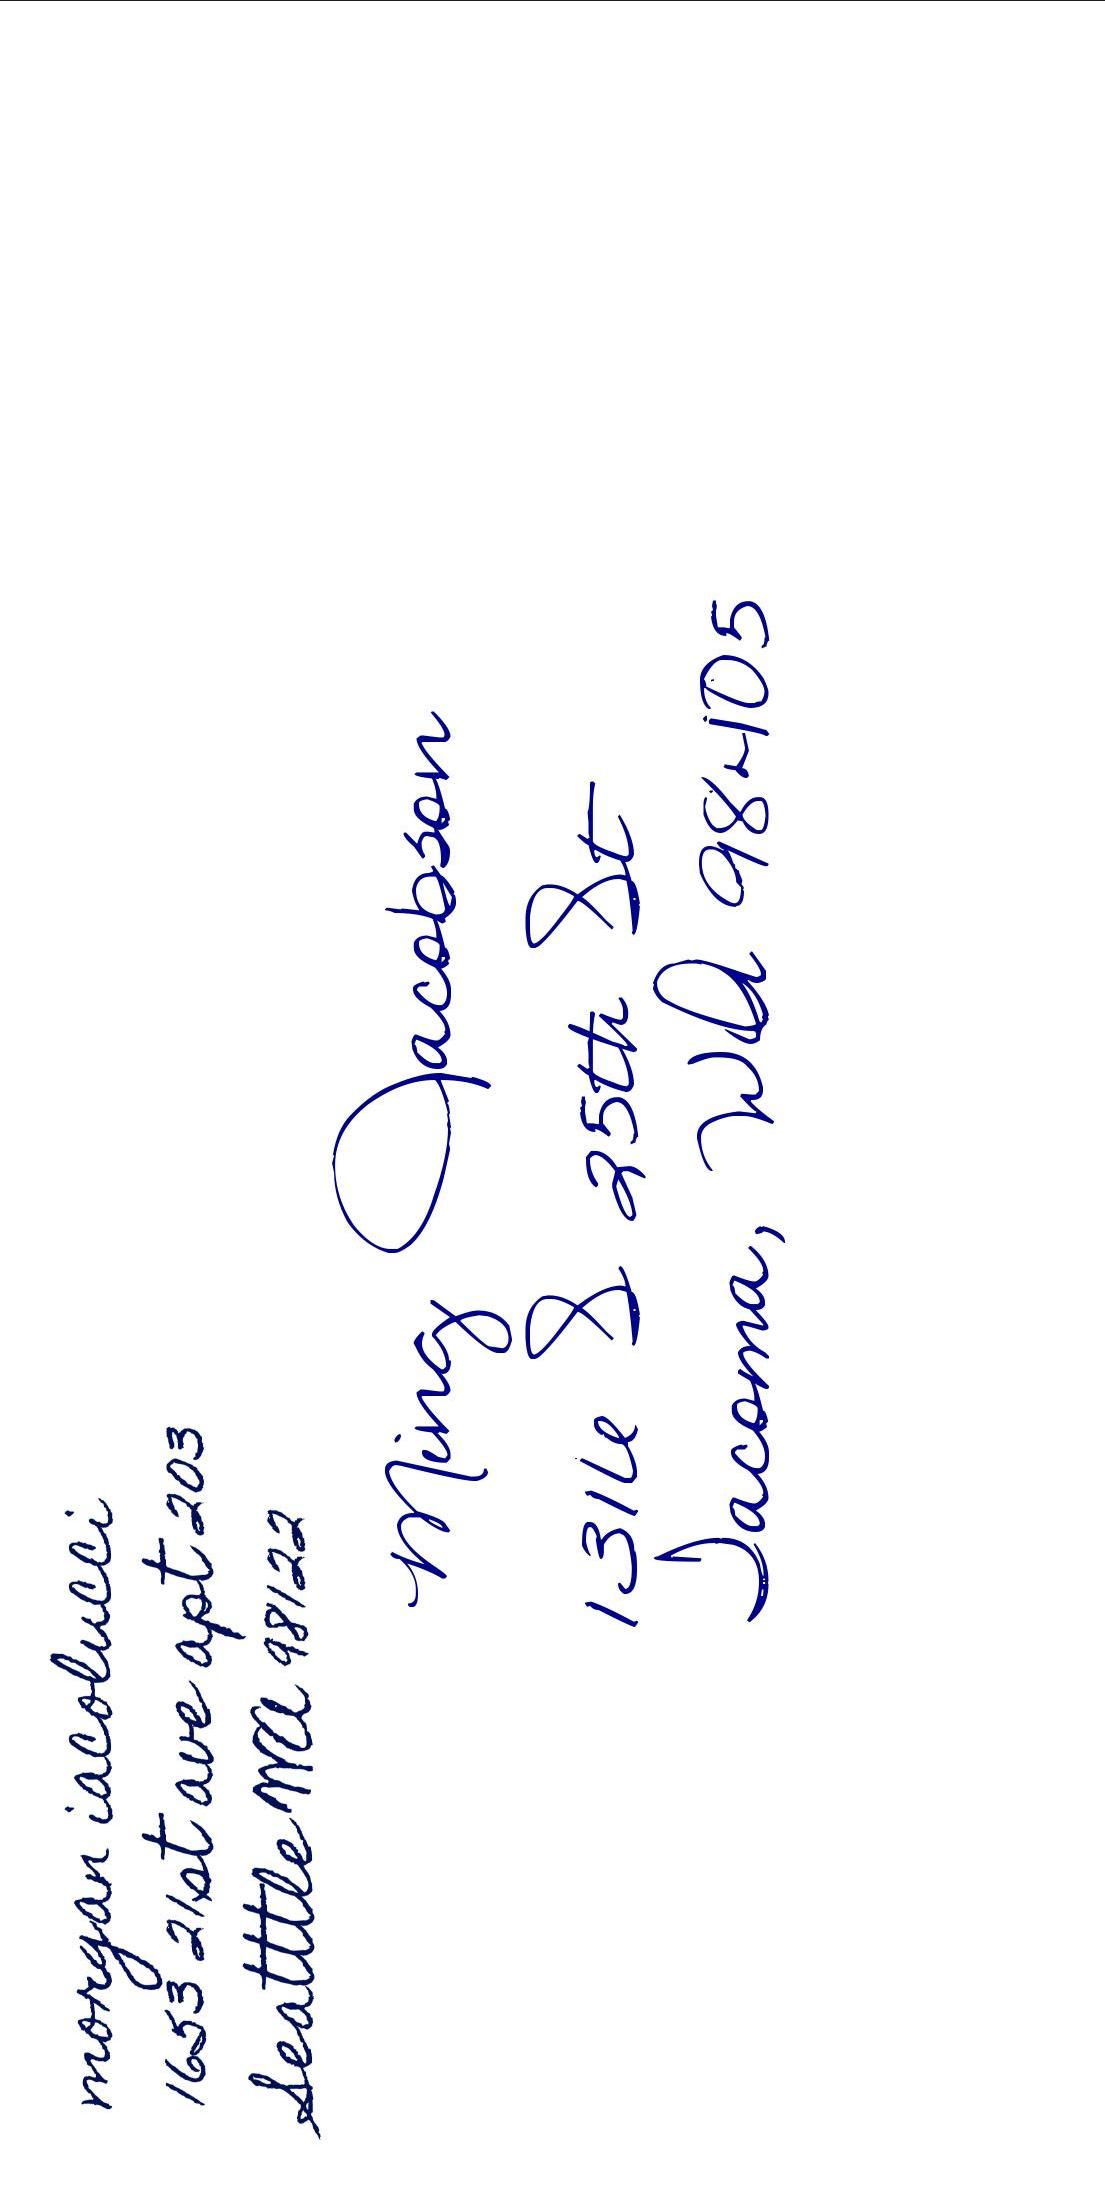 morgan iacolucci
1653 21st ave apt 203
Seattle WA 98122
Ming Jacobson
1316 S 25th St
Tacoma, WA 98405